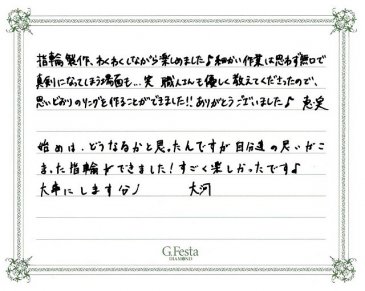 指輪製作、わくわくしながら楽しめました♪細かい作業は思わず無口で
真剣になってしまう場面も…笑 職人さんも優しく教えてくださったので、
思いどおりのリングを作ることができました!!ありがとうございました♪
始めは、どうなるかと思ったんですが自分達の思いがこ
まった指輪ができました!すごく楽しかったです♪
大事にします♪ 大河
G.Festa
DIAMOND